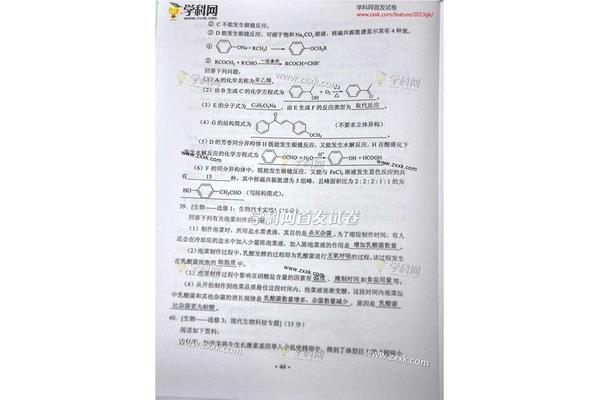 学科网 ZXXK.COM
学科网首发试卷
www.zxxk.com/feature/2013gk/
② C不能发生银镜反应。
③ D能发生银镜反应、可溶于饱和Na₂CO₃溶液、核磁共振氢谱显示其有4种氢。
④ —ONa + RCH₂I → —OCH₂R
⑤ RCOCH₃ + R'CHO 一定条件 RCOCH=CHR'
回答下列问题:
(1) A的化学名称为 苯乙烯 。
(2) 由B生成C的化学方程式为 OH + O₂ Cu △ O
(3) E的分子式为 C₇H₅O₂Na ,由E生成F的反应类型为 取代反应 。
(4) G的结构简式为 OCH₃ (不要求立体异构)
(5) D的芳香同分异构体H既能发生银镜反应,又能发生水解反应,H在酸催化下
发生水解反应的化学方程式为 —OCHO + H₂O H⁺ —OH + HCOOH
(6) F的同分异构体中,既能发生银镜反应,又能与FeCl₃溶液发生显色反应的共
有 13 种,其中核磁共振氢谱为5组峰,且峰面积比为2:2:2:1:1的为
HO— —CH₂CHO (写结构简式)。
39. [生物——选修1:生物技术实践](15分)
回答下列有关泡菜制作的
(1) 制作泡菜时,所用盐水需煮沸,其目的是 杀灭杂菌 。为了缩短制作时间,有人
还会在冷却后的盐水中加入少量陈泡菜液,加入陈泡菜液的作用是 增加乳酸菌数量 。
(2) 泡菜制作过程中,乳酸发酵的过程即为乳酸菌进行 无氧呼吸 的过程。该过程发生
在乳酸菌细胞的 细胞质 中。
(3) 泡菜制作过程中影响亚硝酸盐含量的因素有 温度 、 腌制时间 和 食盐用量 等。
(4) 从开始制作到泡菜品质最佳这段时间内,泡菜液逐渐变酸,这段时间内泡菜坛
中乳酸菌和其他杂菌的消长规律是 乳酸菌数量增多,杂菌数量减少 ,原因是 乳酸菌
比杂菌更为耐酸 。
40. [生物——选修3:现代生物科技专题](15分)
阅读如下资料:
· 44 ·